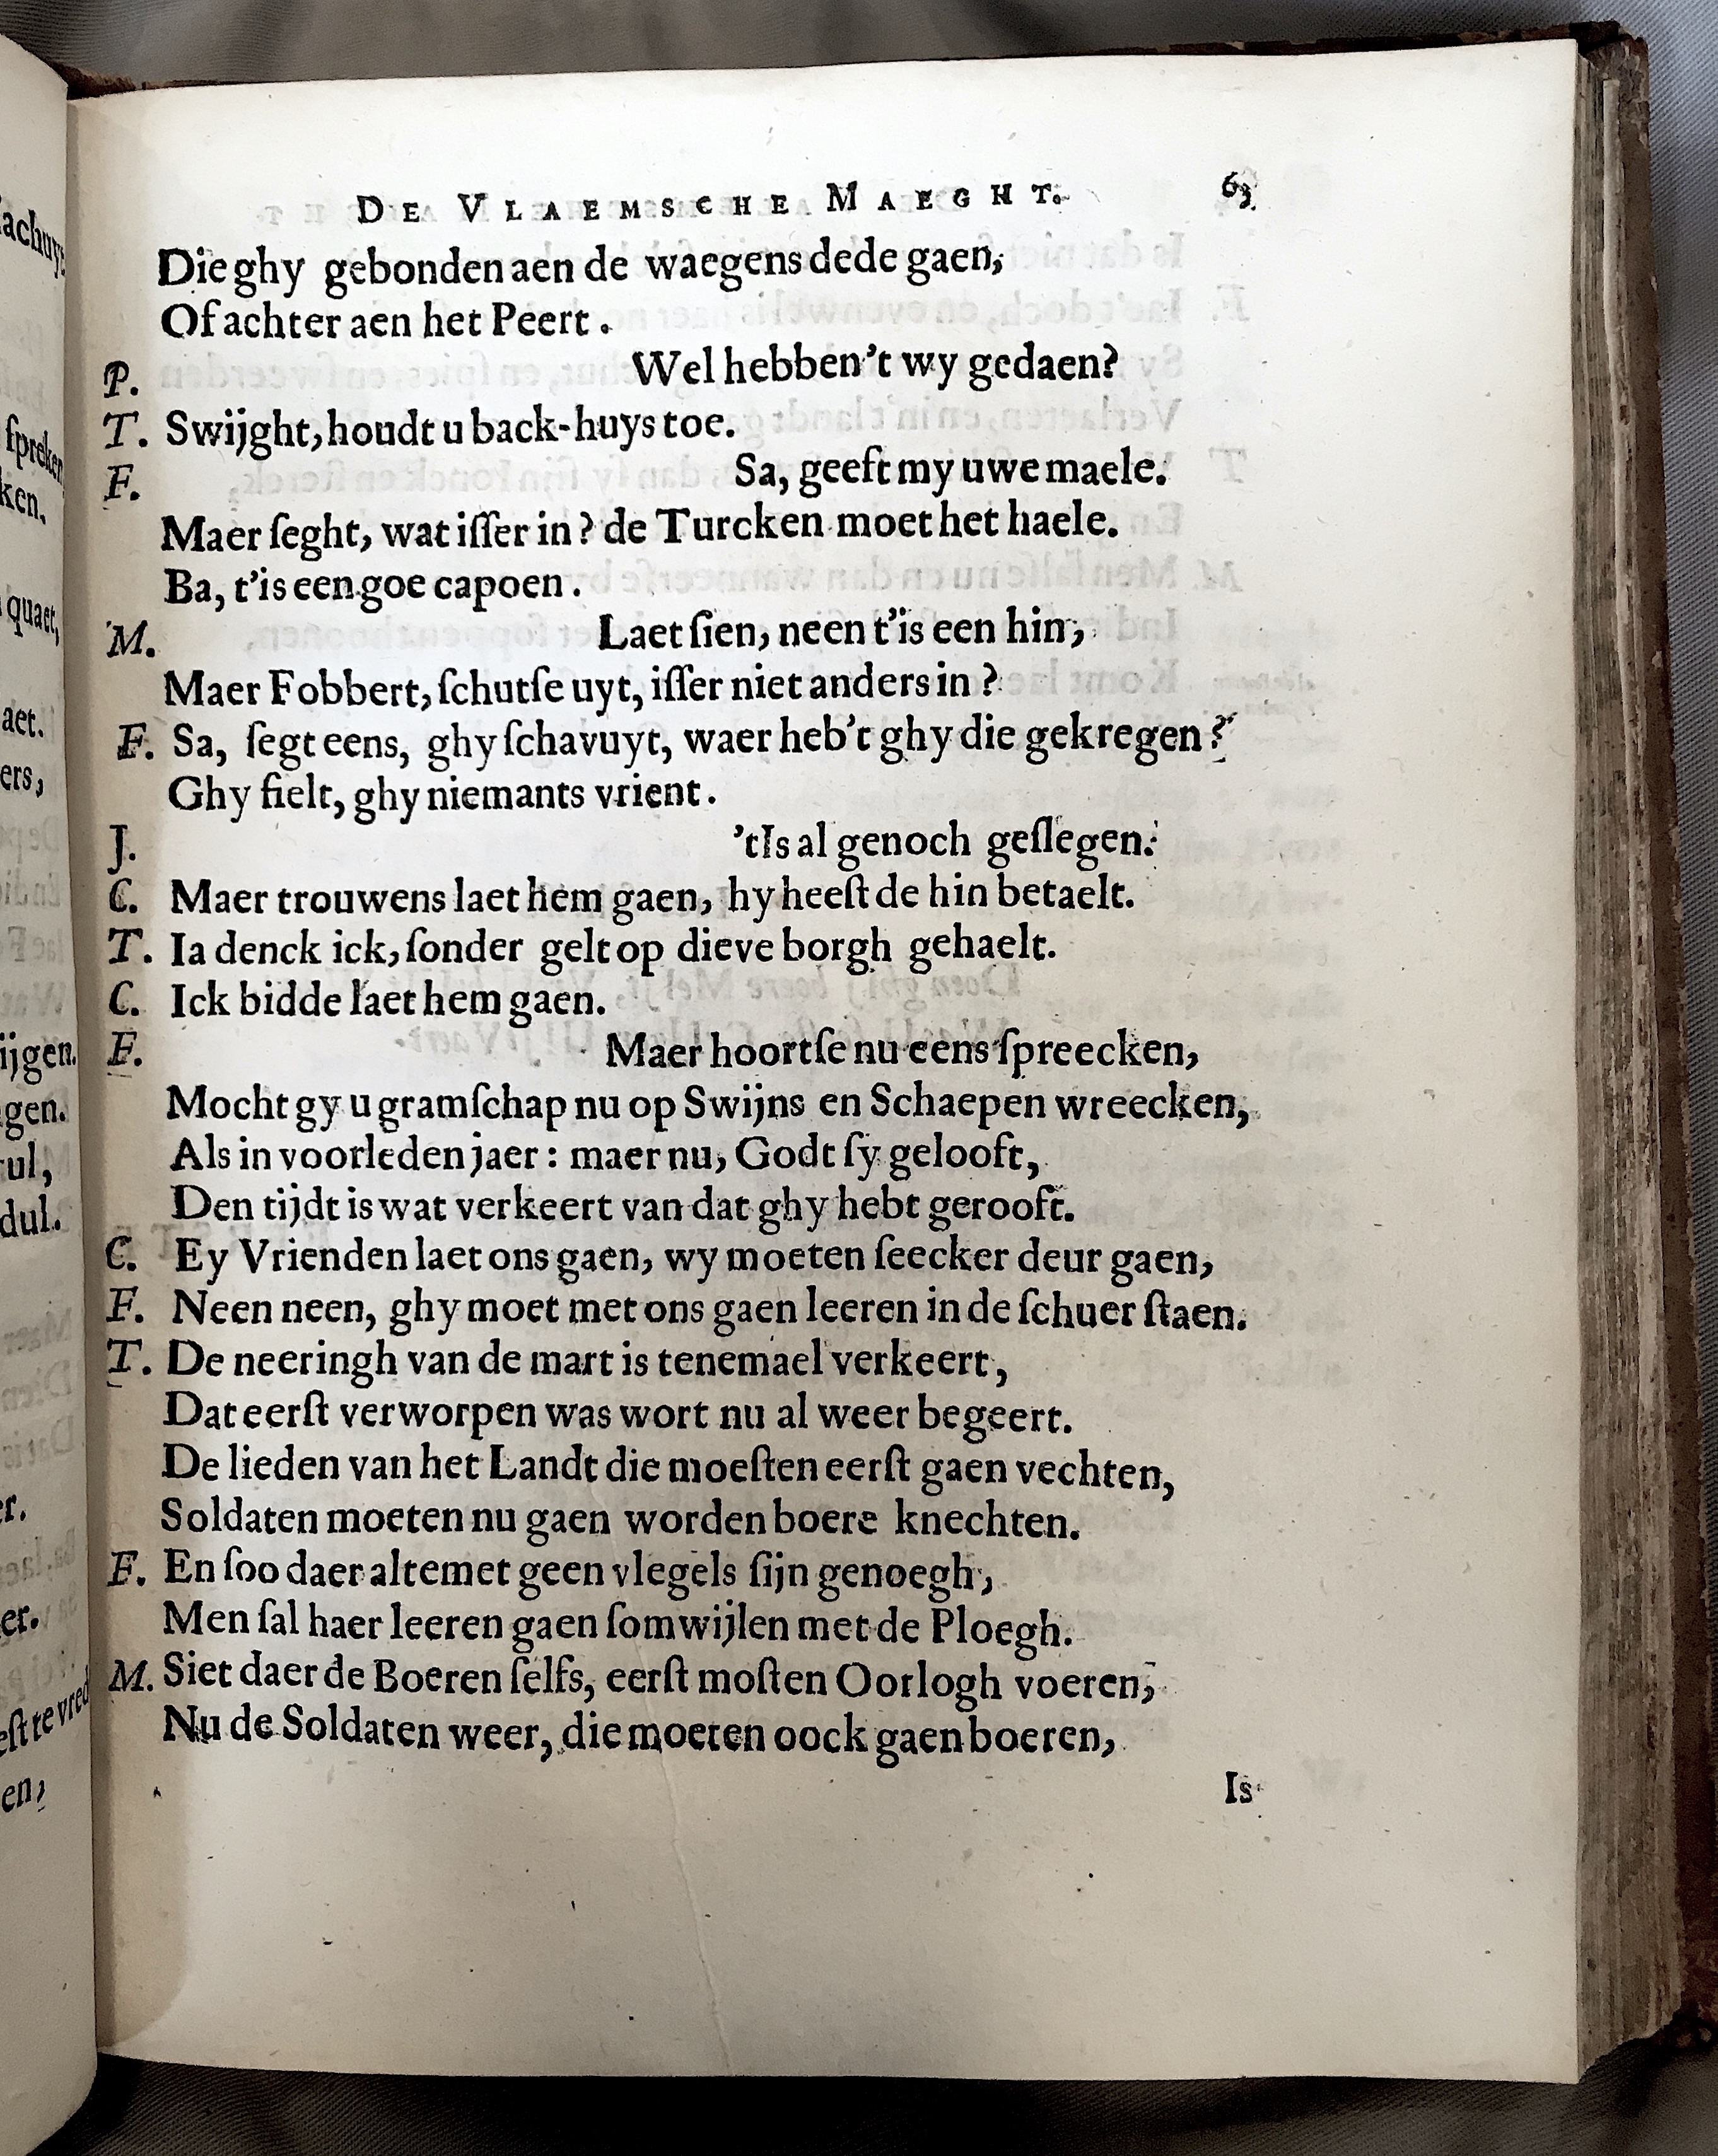 DE VLAEMSCHE MAEGHT. 63
Die ghy gebonden aen de waegens dede gaen,
Of achter aen het Peert.
P. Wel hebben't wy gedaen?
T. Swijght, houdt u back-huys toe.
F. Sa, geeft my uwe maele.
Maer ſeght, wat iſſer in? de Turcken moet het haele.
Ba, t'is een goe capoen.
M. Laet ſien, neen t'is een hin,
Maer Fobbert, ſchutſe uyt, iſſer niet anders in?
F. Sa, ſegt eens, ghy ſchavuyt, waer heb't ghy die gekregen?
Ghy fielt, ghy niemants vrient.
J. 'tIs al genoch geſlegen.
C. Maer trouwens laet hem gaen, hy heeſt de hin betaelt.
T. Ia denck ick, ſonder gelt op dieve borgh gehaelt.
C. Ick bidde laet hem gaen.
F. Maer hoortſe nu eens ſpreecken,
Mocht gy u gramſchap nu op Swijns en Schaepen wreecken,
Als in voorleden jaer: maer nu, Godt ſy gelooft,
Den tijdt is wat verkeert van dat ghy hebt gerooft.
C. Ey Vrienden laet ons gaen, wy moeten ſeecker deur gaen,
F. Neen neen, ghy moet met ons gaen leeren in de ſchuer ſtaen.
T. De neeringh van de mart is tenemael verkeert,
Dat eerſt verworpen was wort nu al weer begeert.
De lieden van het Landt die moeſten eerſt gaen vechten,
Soldaten moeten nu gaen worden boere knechten.
F. En ſoo daer altemet geen vlegels ſijn genoegh,
Men ſal haer leeren gaen ſomwijlen met de Ploegh.
M. Siet daer de Boeren ſelfs, eerſt moſten Oorlogh voeren,
Nu de Soldaten weer, die moeten oock gaen boeren,
Is